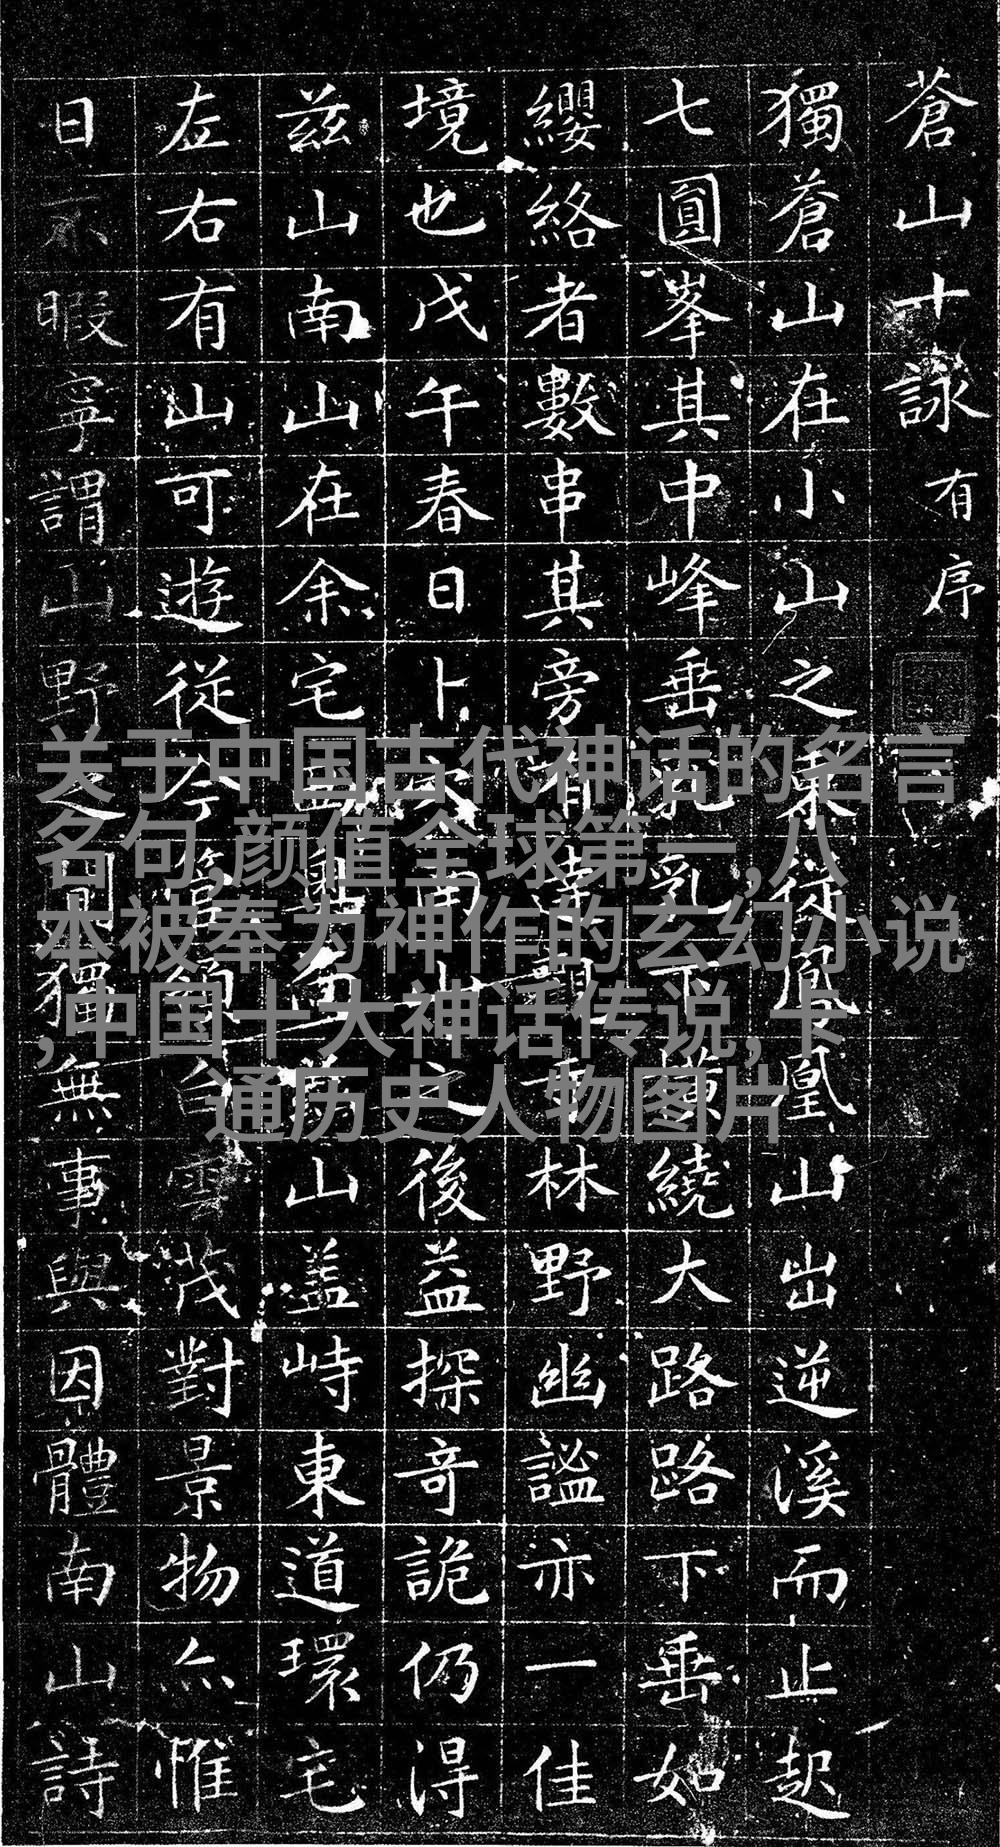 蒼山十詠 有序
獨蒼山在小山之東從凰山出逆溪而止起
七圓峯其中峰垂乳下繞大路路下垂如
纓絡者數串其旁有林野幽謐亦一佳
境也戊午春日卜南山之後益探奇詭仍得
茲山南山在余宅山蓋峙東道環宅
左右有山可遊從今管領雲茂對景物亦惟
日不暇寧謂山野之間獨無事與因體南山詩
关于中国古代神话的名言
名句,颜值全球第一,八
本被奉为神作的玄幻小说
,中国十大神话传说,卡
通历史人物图片